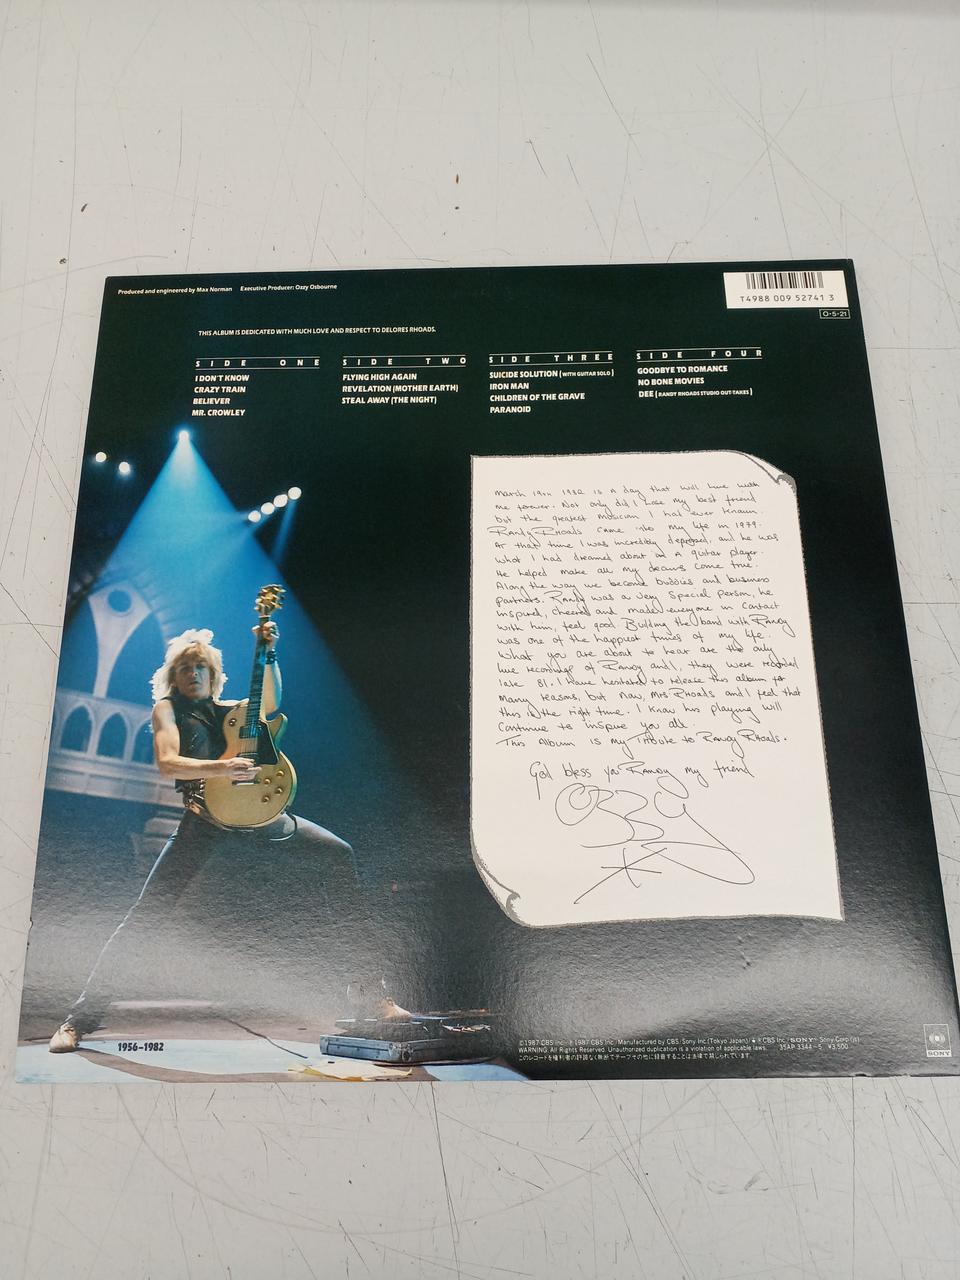 Produced and engineered by Max Norman Executive Producer: Ozzy Osbourne
T4988 009 52741 3
O-5-21
THIS ALBUM IS DEDICATED WITH MUCH LOVE AND RESPECT TO DELORES RHOADS.
SIDE ONE
I DON'T KNOW
CRAZY TRAIN
BELIEVER
MR. CROWLEY
SIDE TWO
FLYING HIGH AGAIN
REVELATION (MOTHER EARTH)
STEAL AWAY (THE NIGHT)
SIDE THREE
SUICIDE SOLUTION (WITH GUITAR SOLO)
IRON MAN
CHILDREN OF THE GRAVE
PARANOID
SIDE FOUR
GOODBYE TO ROMANCE
NO BONE MOVIES
DEE (RANDY RHOADS STUDIO OUT-TAKES)
March 19th 1982 is a day that will live with
me forever. Not only did I lose my best friend
but the greatest musician I had ever known.
Randy Rhoads came into my life in 1979.
At that time I was incredibly depressed, and he was
what I had dreamed about in a guitar player.
He helped make all my dreams come true.
Along the way we became buddies and business
partners. Randy was a very special person, he
inspired, cheered and made everyone in contact
with him, feel good. Building the band with Randy
was one of the happiest times of my life.
What you are about to hear are the only
live recordings of Randy and I, they were recorded
late 81. I have hesitated to release this album for
many reasons, but now, Mrs Rhoads and I feel that
this is the right time. I know his playing will
continue to inspire you all.
This Album is my Tribute to Randy Rhoads.
God bless you Randy my friend
Ozzy
1956-1982
©1987 CBS Inc./℗1987 CBS Inc./Manufactured by CBS/Sony Inc.(Tokyo Japan)/ ® CBS Inc./SONY Sony Corp.(JE)
WARNING: All Rights Reserved. Unauthorized duplication is a violation of applicable laws. 35AP 3344~5 ¥3,500
このレコードを権利者の許諾なく無断でテープその他に録音することは法律で禁じられています。
SONY